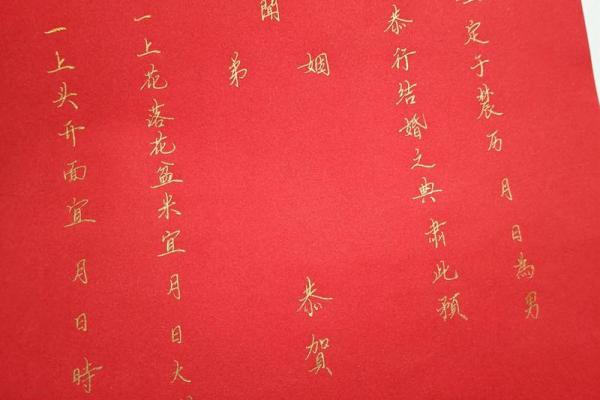 定于農历 月 日為男
恭行结婚之典 肅此預
姻 恭賀
聞
弟
一上花落花盆米宜 月 日大
一上头开面宜 月 日時